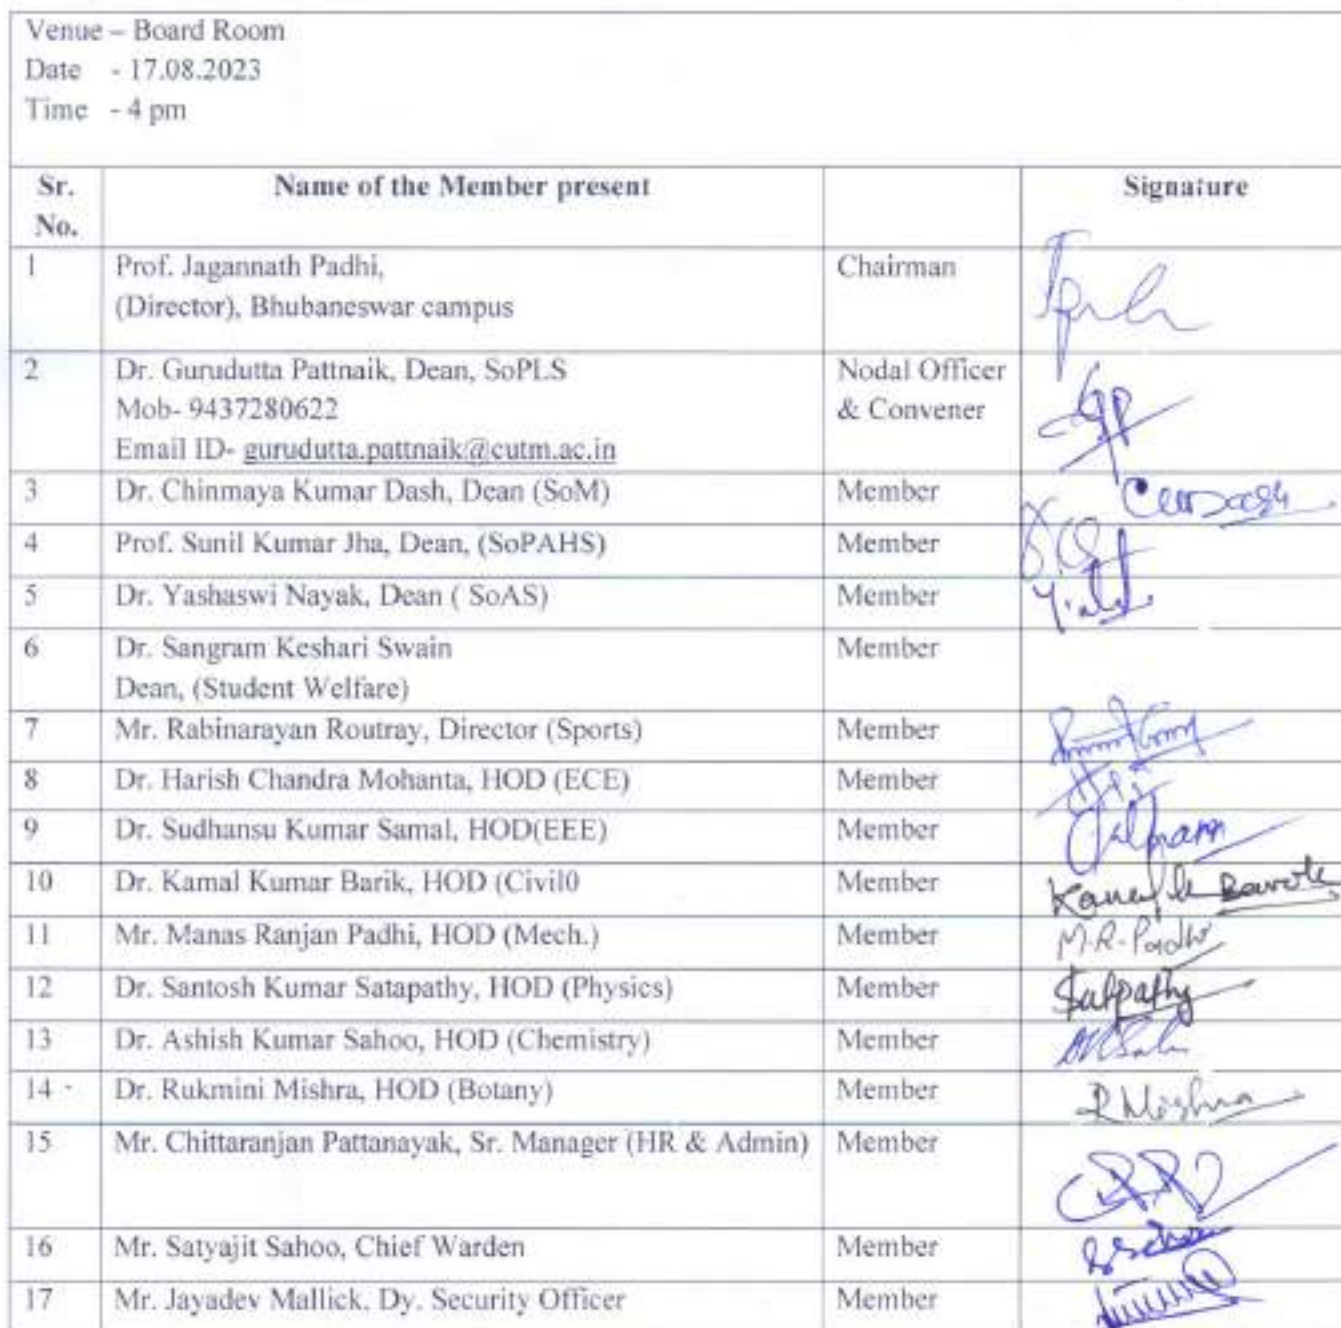 Venue – Board Room
Date - 17.08.2023
Time - 4 pm
Sr. No. Name of the Member present Signature
1 Prof. Jagannath Padhi, Chairman
(Director), Bhubaneswar campus
2 Dr. Gurudutta Pattnaik, Dean, SoPLS Nodal Officer
Mob- 9437280622 & Convener
Email ID- gurudutta.pattnaik@cutm.ac.in
3 Dr. Chinmaya Kumar Dash, Dean (SoM) Member
4 Prof. Sunil Kumar Jha, Dean, (SoPAHS) Member
5 Dr. Yashaswi Nayak, Dean ( SoAS) Member
6 Dr. Sangram Keshari Swain Member
Dean, (Student Welfare)
7 Mr. Rabinarayan Routray, Director (Sports) Member
8 Dr. Harish Chandra Mohanta, HOD (ECE) Member
9 Dr. Sudhansu Kumar Samal, HOD(EEE) Member
10 Dr. Kamal Kumar Barik, HOD (Civil0 Member
11 Mr. Manas Ranjan Padhi, HOD (Mech.) Member M.R. Padhi
12 Dr. Santosh Kumar Satapathy, HOD (Physics) Member Satpathy
13 Dr. Ashish Kumar Sahoo, HOD (Chemistry) Member
14 - Dr. Rukmini Mishra, HOD (Botany) Member R Mishra
15 Mr. Chittaranjan Pattanayak, Sr. Manager (HR & Admin) Member
16 Mr. Satyajit Sahoo, Chief Warden Member
17 Mr. Jayadev Mallick, Dy. Security Officer Member